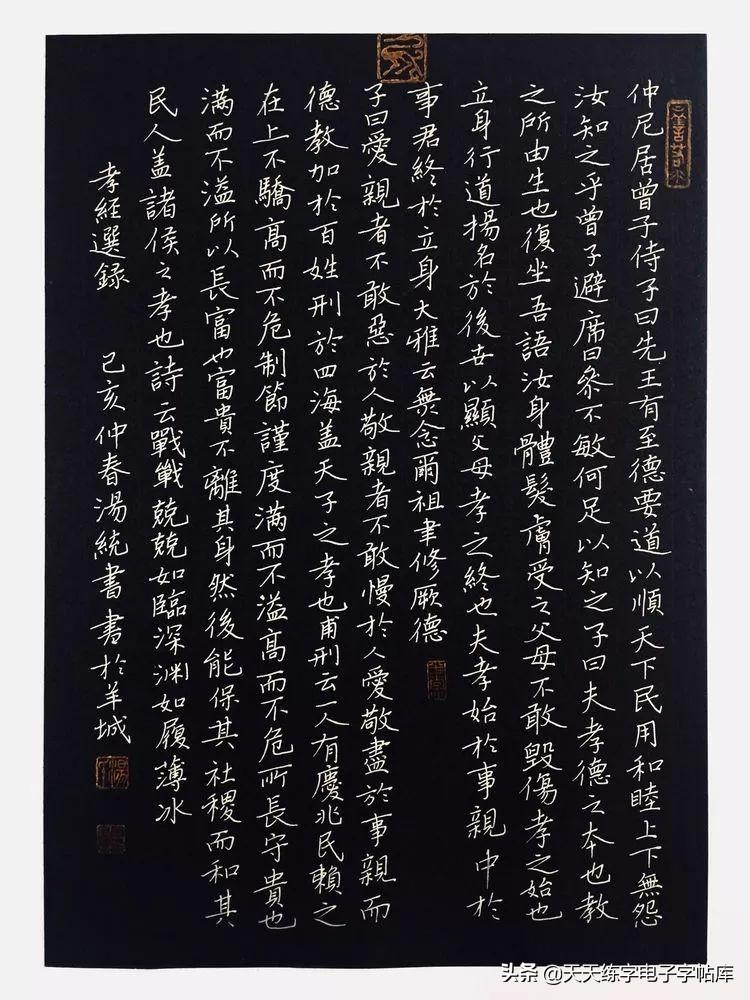 仲尼居曾子侍子曰先王有至德要道以順天下民用和睦上下無怨
汝知之乎曾子避席曰參不敏何足以知之子曰夫孝德之本也教
之所由生也復坐吾語汝身體髮膚受之父母不敢毀傷孝之始也
立身行道揚名於後世以顯父母孝之終也夫孝始於事親中於
事君終於立身大雅云無念爾祖聿修厥德
子曰愛親者不敢惡於人敬親者不敢慢於人愛敬盡於事親而
德教加於百姓刑於四海盖天子之孝也甫刑云一人有慶兆民賴之
在上不驕高而不危制節謹度满而不溢高而不危所長守貴也
满而不溢所以長富也富貴不離其身然後能保其社稷而和其
民人盖諸侯之孝也詩云戰戰兢兢如臨深淵如履薄冰
孝經選録 己亥仲春湯統書書於羊城
头条@天天练字电子字帖库